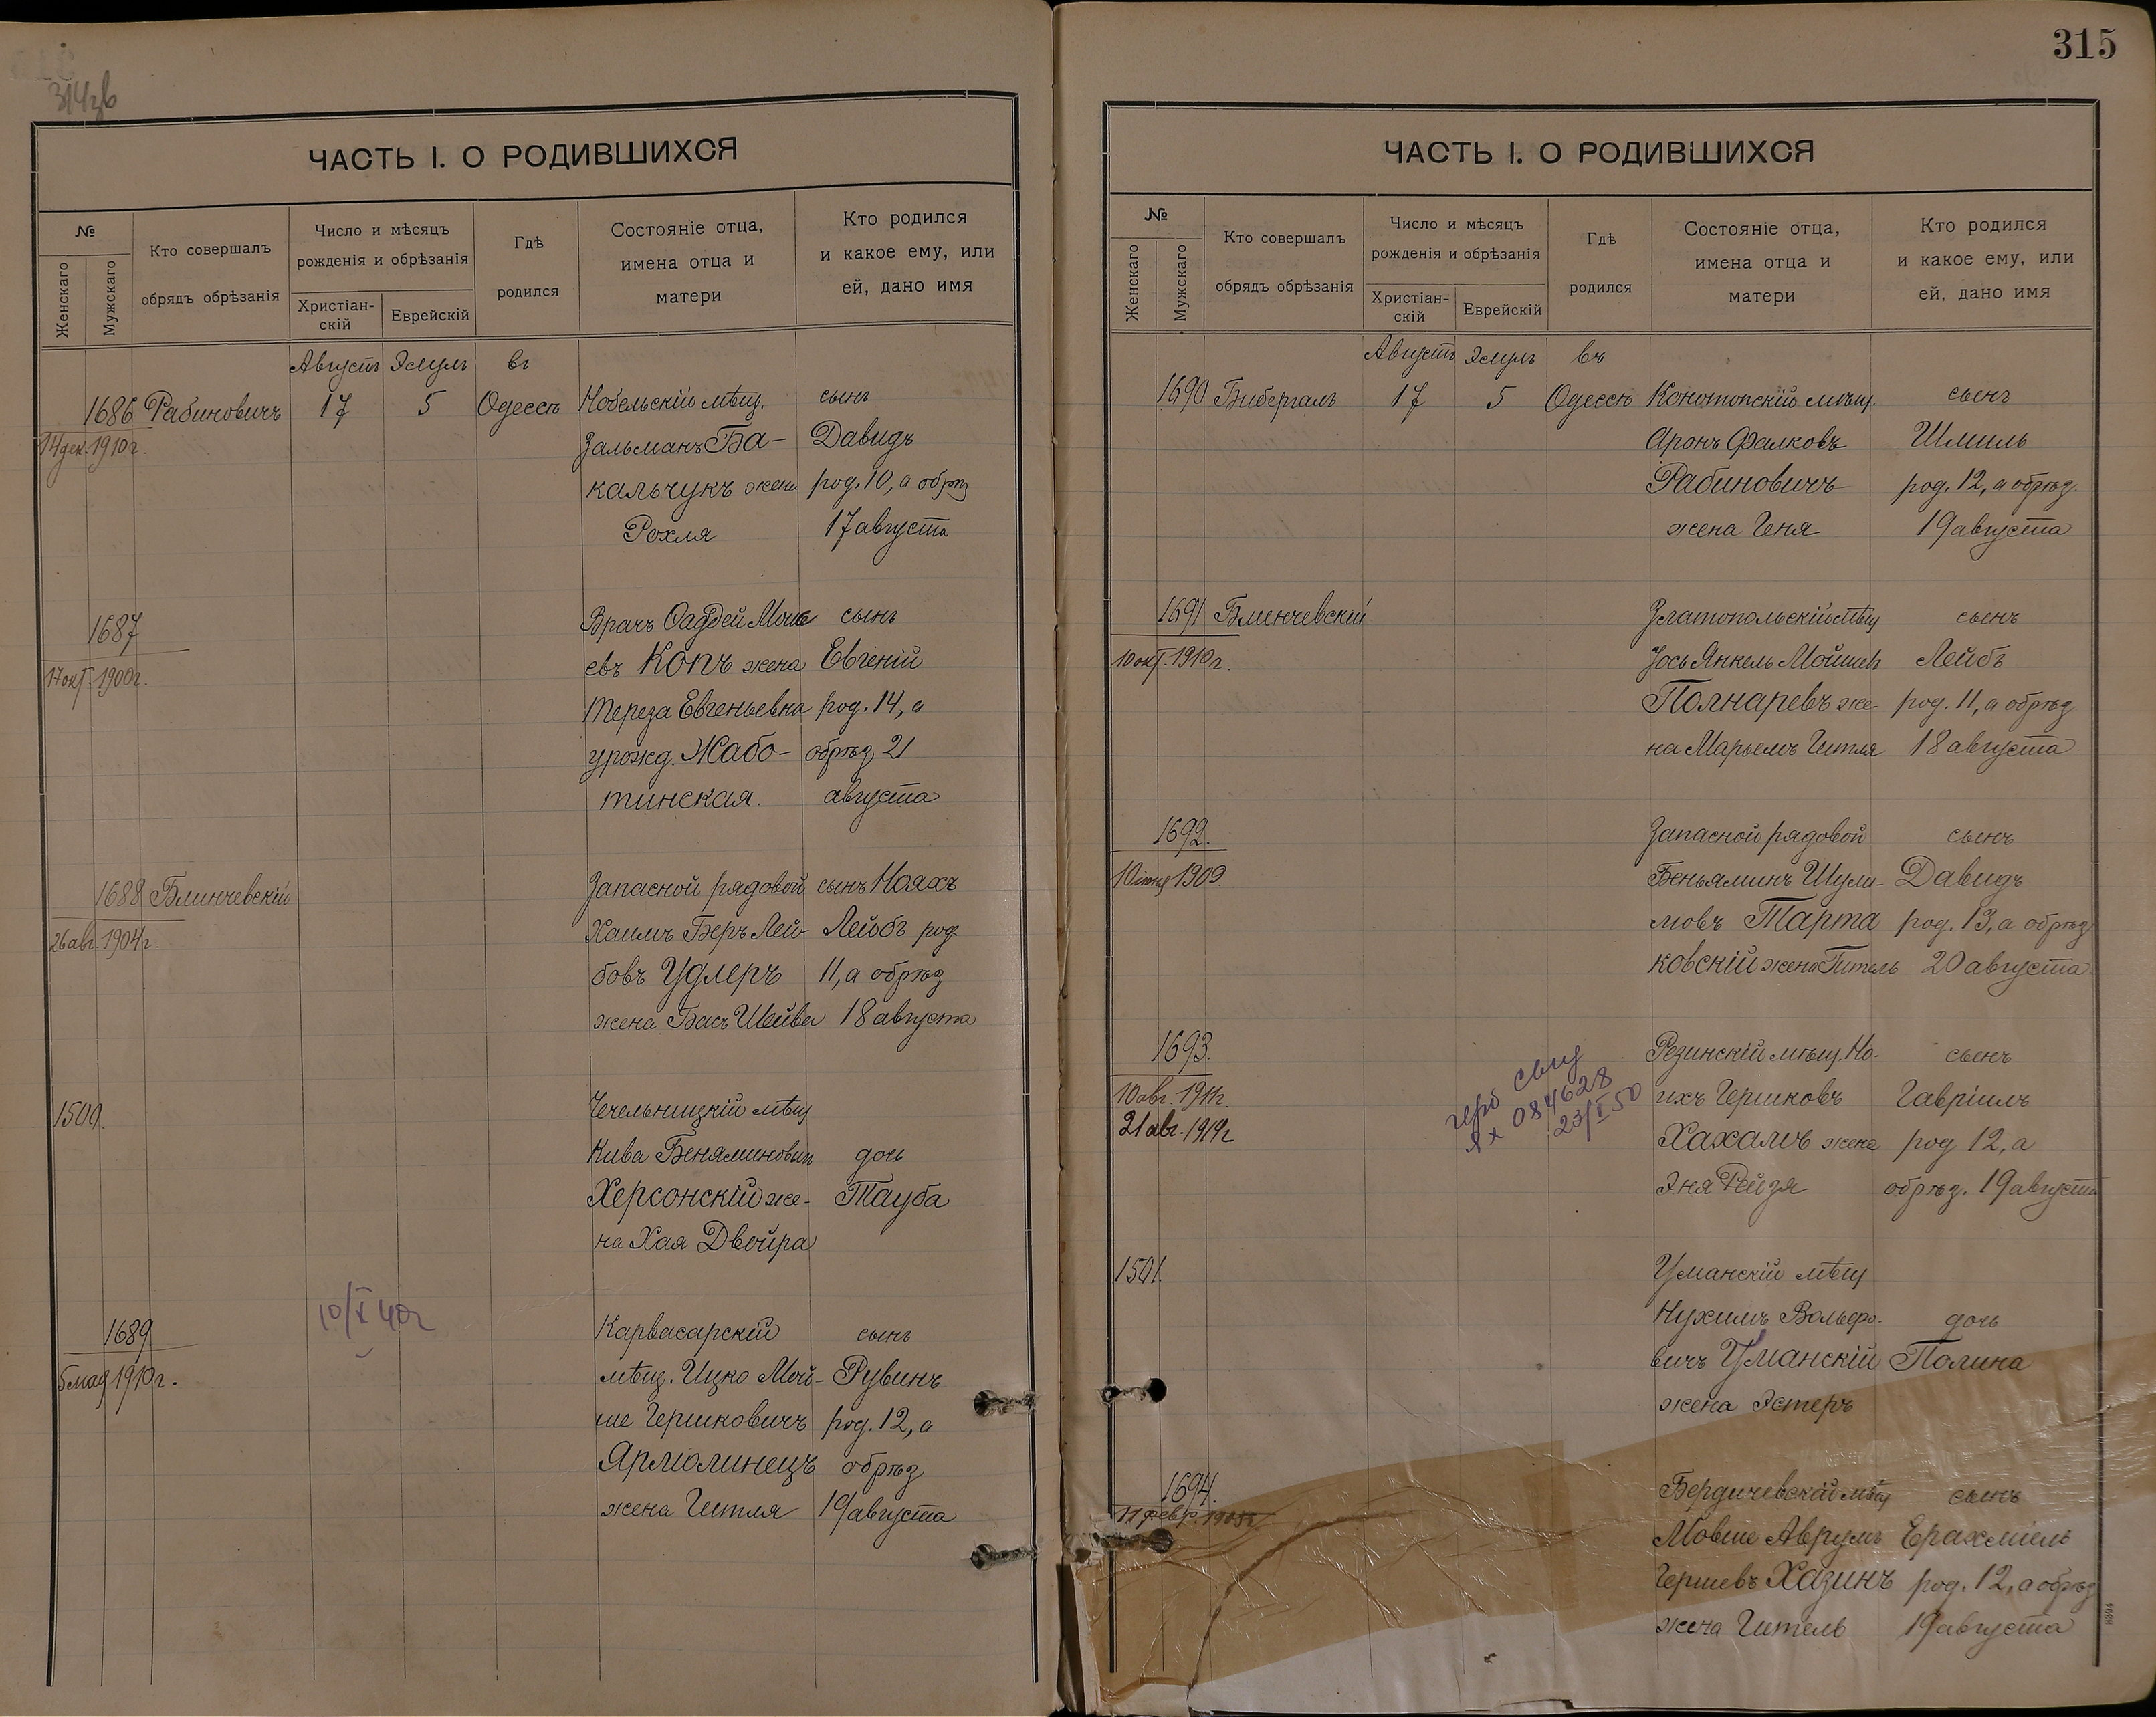 314зв
ЧАСТЬ I. О РОДИВШИХСЯ
№
Женскаго
Мужскаго
Кто совершалъ
обрядъ обрѣзанія
Число и мѣсяцъ
рожденія и обрѣзанія
Христіан-
скій
Еврейскій
Гдѣ
родился
Состояніе отца,
имена отца и
матери
Кто родился
и какое ему, или
ей, дано имя
Августъ Элулъ въ
1686 Рабиновичъ 17 5 Одессѣ Кобельскій мѣщ. сынъ
14 дек. 1910 г. Зальманъ Ба- Давидъ
кальчукъ жена род. 10, а обрѣз
Рохля 17 августа
1687 Врачъ Фаддей Моисе сынъ
17 окт. 1900 г. евъ Копъ жена Евгеній
Тереза Евгеньевна род. 14, а
урожд. Жабо- обрѣз 21
тинская. августа
1688 Блинчевскій Запасной рядовой сынъ Нояхъ
26 авг. 1904 г. Хаимъ Беръ Лей- Лейбъ род.
бовъ Удлеръ 11, а обрѣз
жена Бася Шейва 18 августа
1500. Чечельницкій мѣщ
Кива Беняминовъ дочь
Херсонскій же- Тауба
на Хая Двойра
1689. 10/X 40 г Карвасарскій сынъ
5 мая 1910 г. мѣщ. Ицко Мой- Рувинъ
ше Гершковичъ род. 12, а
Ярмолинецъ обрѣз
жена Гитля 19 августа
315
ЧАСТЬ I. О РОДИВШИХСЯ
№
Женскаго
Мужскаго
Кто совершалъ
обрядъ обрѣзанія
Число и мѣсяцъ
рожденія и обрѣзанія
Христіан-
скій
Еврейскій
Гдѣ
родился
Состояніе отца,
имена отца и
матери
Кто родился
и какое ему, или
ей, дано имя
Августъ Элулъ въ
1690 Бибергалъ 17 5 Одессѣ Конотопскій мѣщ. сынъ
Аронъ Фалковъ Шмиль
Рабиновичъ род. 12, а обрѣз.
жена Геня 19 августа
1691 Блинчевскій Златопольскій мѣщ сынъ
10 окт. 1910 г. Іось Янкель Мойшевъ Лейбъ
Полнаревъ же- род. 11, а обрѣз
на Марьемъ Гитля 18 августа
1692. Запасной рядовой сынъ
1909. Беньяминъ Шули- Давидъ
мовъ Тарта род. 13, а обрѣз
ковскій жена Гитель 20 августа
1693. Резинскій мѣщ. Но- сынъ
10 авг. 1911 г. ихъ Гершковъ Гавріилъ
21 авг. 1919 г 084628 Хахамъ жена род 12, а
23/I 50 Эня Рейзя обрѣз. 19 августа
1501. Уманскій мѣщ
Нухимъ Вольфо- дочь
вичъ Уманскій Полина
жена Эстеръ
1694. Бердичевскій мѣщ сынъ
Мовше Аврумъ Ерахміель
Гершевъ Хазинъ род. 12, а обрѣз
жена Гитель 19 августа